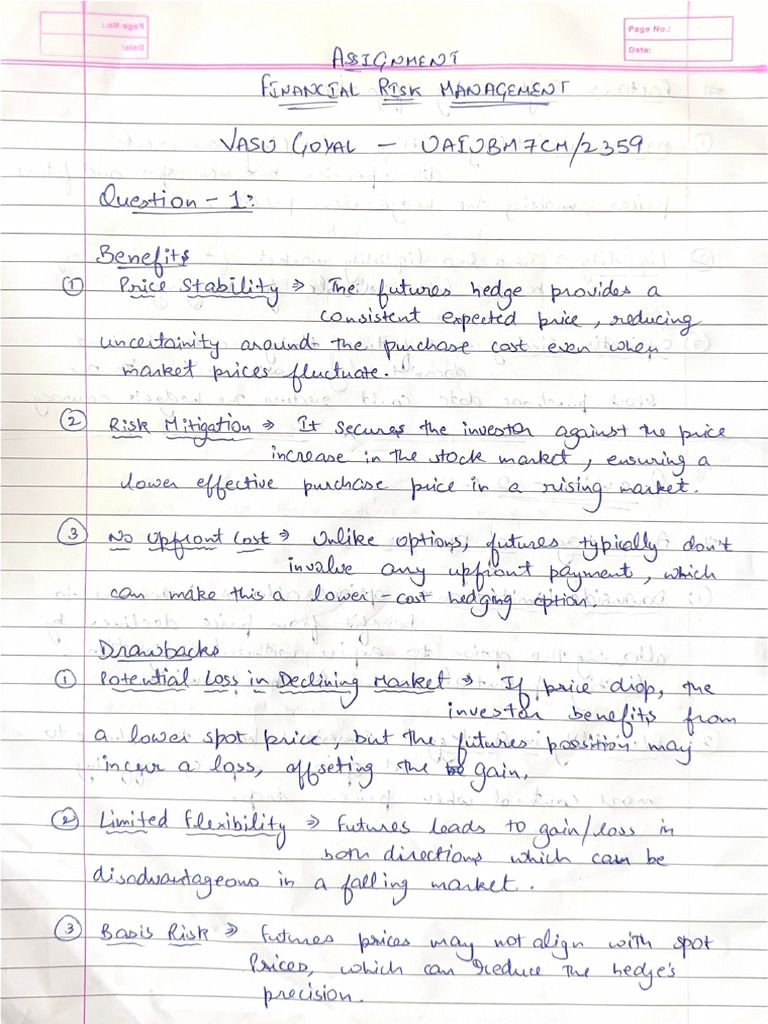 Page No.:
Date:
ASSIGNMENT
FINANCIAL RISK MANAGEMENT
VASU GOYAL — UAIUBM7CM/2359
Question - 1:
Benefits
① Price Stability ⇒ The futures hedge provides a
consistent expected price, reducing
uncertainity around the purchase cost even when
market prices fluctuate.
② Risk Mitigation ⇒ It secures the investor against the price
increase in the stock market, ensuring a
lower effective purchase price in a rising market.
③ No Upfront Cost ⇒ Unlike options, futures typically don't
involve any upfront payment, which
can make this a lower-cost hedging option.
Drawbacks
① Potential Loss in Declining Market ⇒ If price drop, the
investor benefits from
a lower spot price, but the futures position may
incur a loss, offseting the gain.
② Limited Flexibility ⇒ Futures leads to gain/loss in
both directions which can be
disadvantageous in a falling market.
③ Basis Risk ⇒ Futures prices may not align with spot
Prices, which can reduce the hedge's
precision.